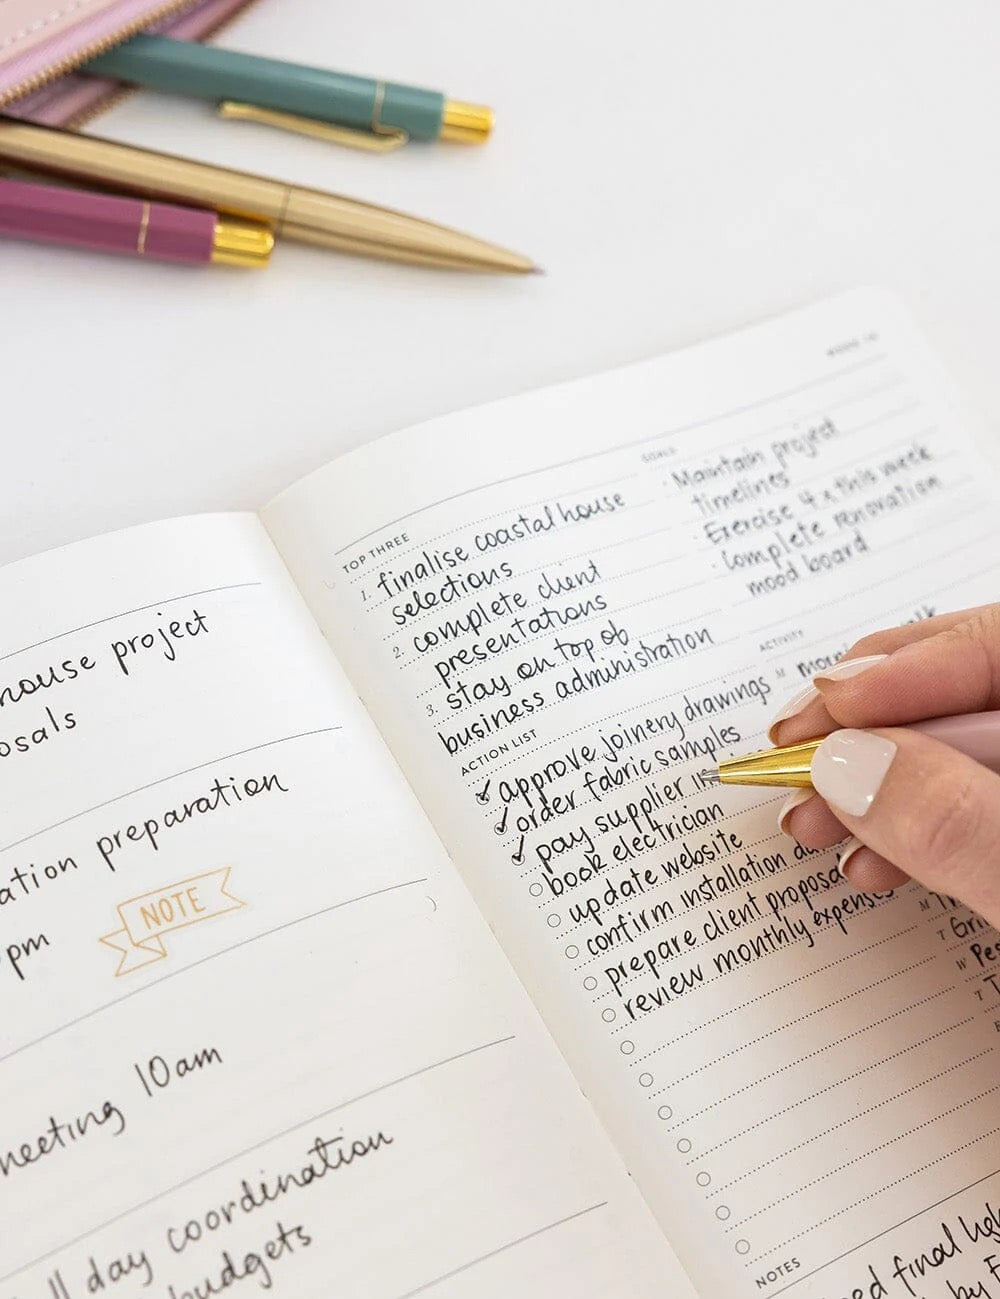 house project
preparation
pm
NOTE
meeting 10am
day coordination
budgets
TOP THREE
1. finalise coastal house
selections
2. complete client
presentations
3. stay on top of
business administration
GOALS
· Maintain project
timelines
· Exercise 4x this week
· Complete renovation
mood board
ACTION LIST
approve joinery drawings
order fabric samples
pay supplier
book electrician
update website
confirm installation
prepare client proposals
review monthly expenses
ACTIVITY
M
M
T
W
T
NOTES
final
by